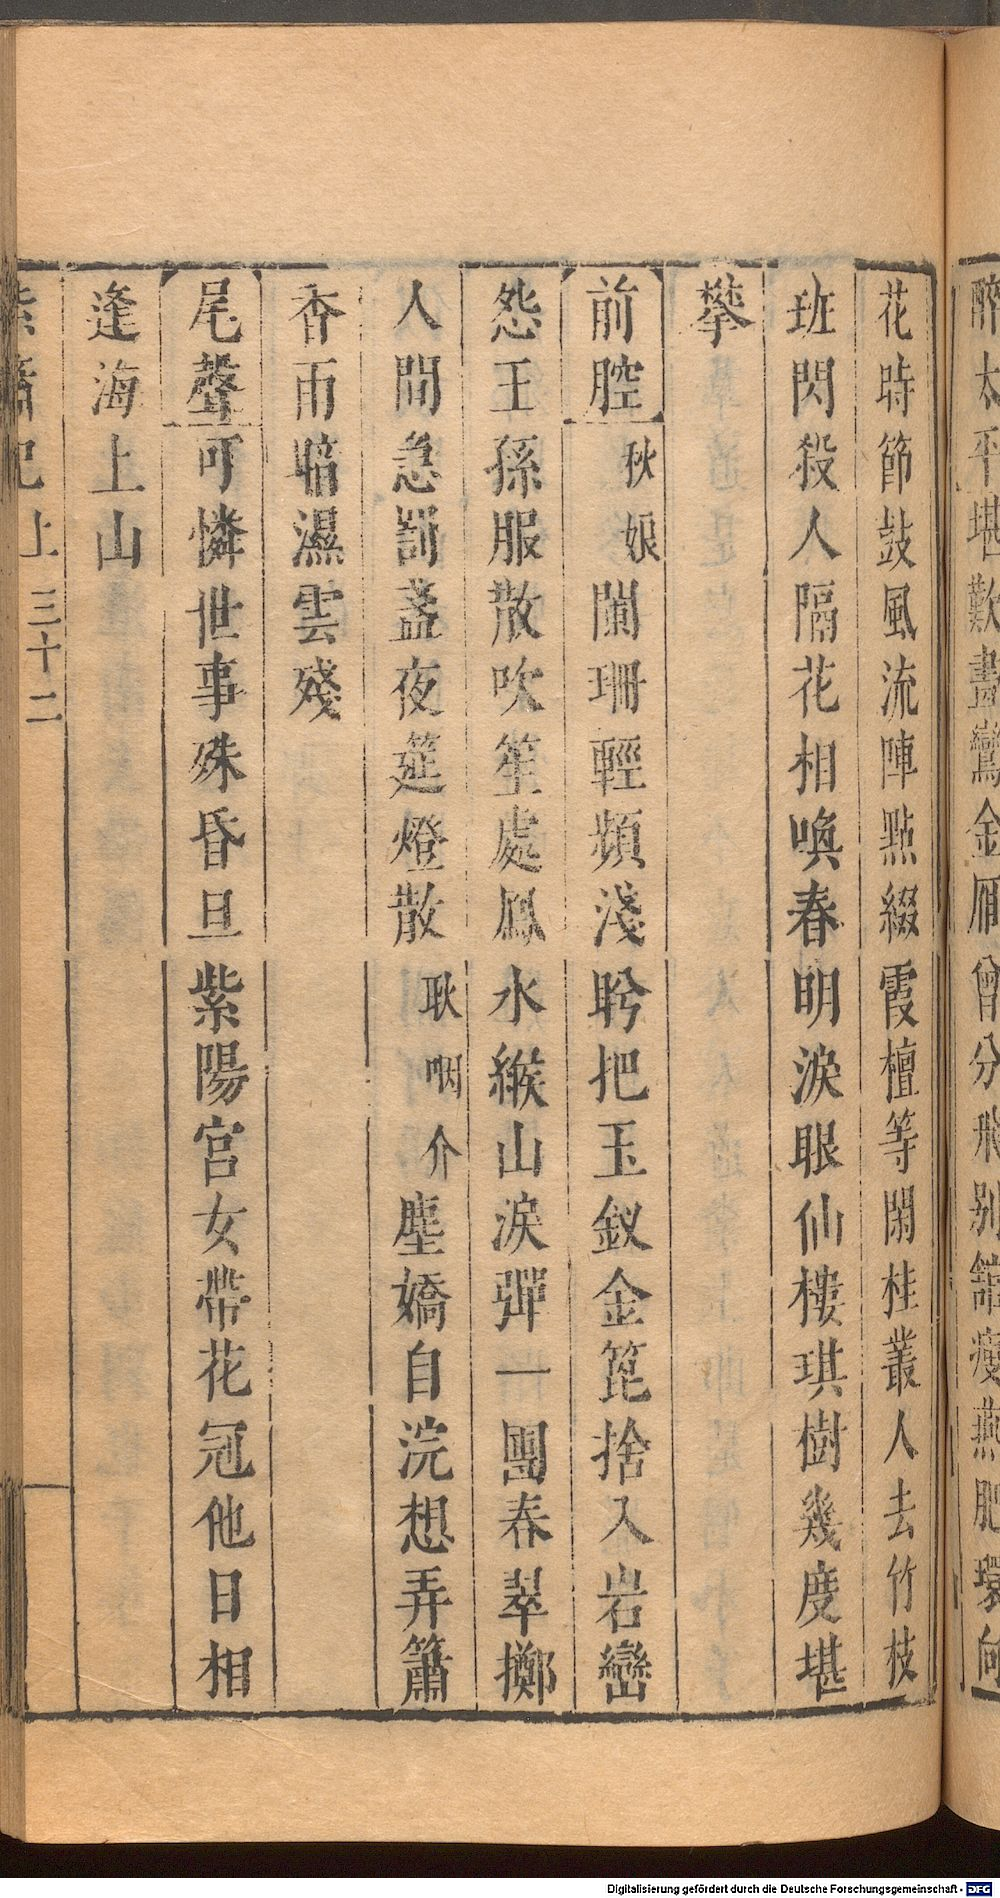 醉太平堪歎晝鸞金雁曾分飛別館瘦燕肥環向
花時節鼓風流陣點綴霞檀等閑桂叢人去竹枝
班閃殺人隔花相喚春明淚眼仙樓琪樹幾度堪
攀
前腔秋娘闌珊輕頻淺盻把玉釵金篦捨入岩巒
怨王孫服散吹笙處鳳水緱山淚彈一團春翠擲
人間急罰盞夜筵燈散耿咽介塵嬌自浣想弄簫
杳雨暗濕雲殘
尾聲可憐世事殊昏旦紫陽宮女帶花冠他日相
逢海上山
紫簫記上三十二
Digitalisierung gefördert durch die Deutsche Forschungsgemeinschaft - DFG